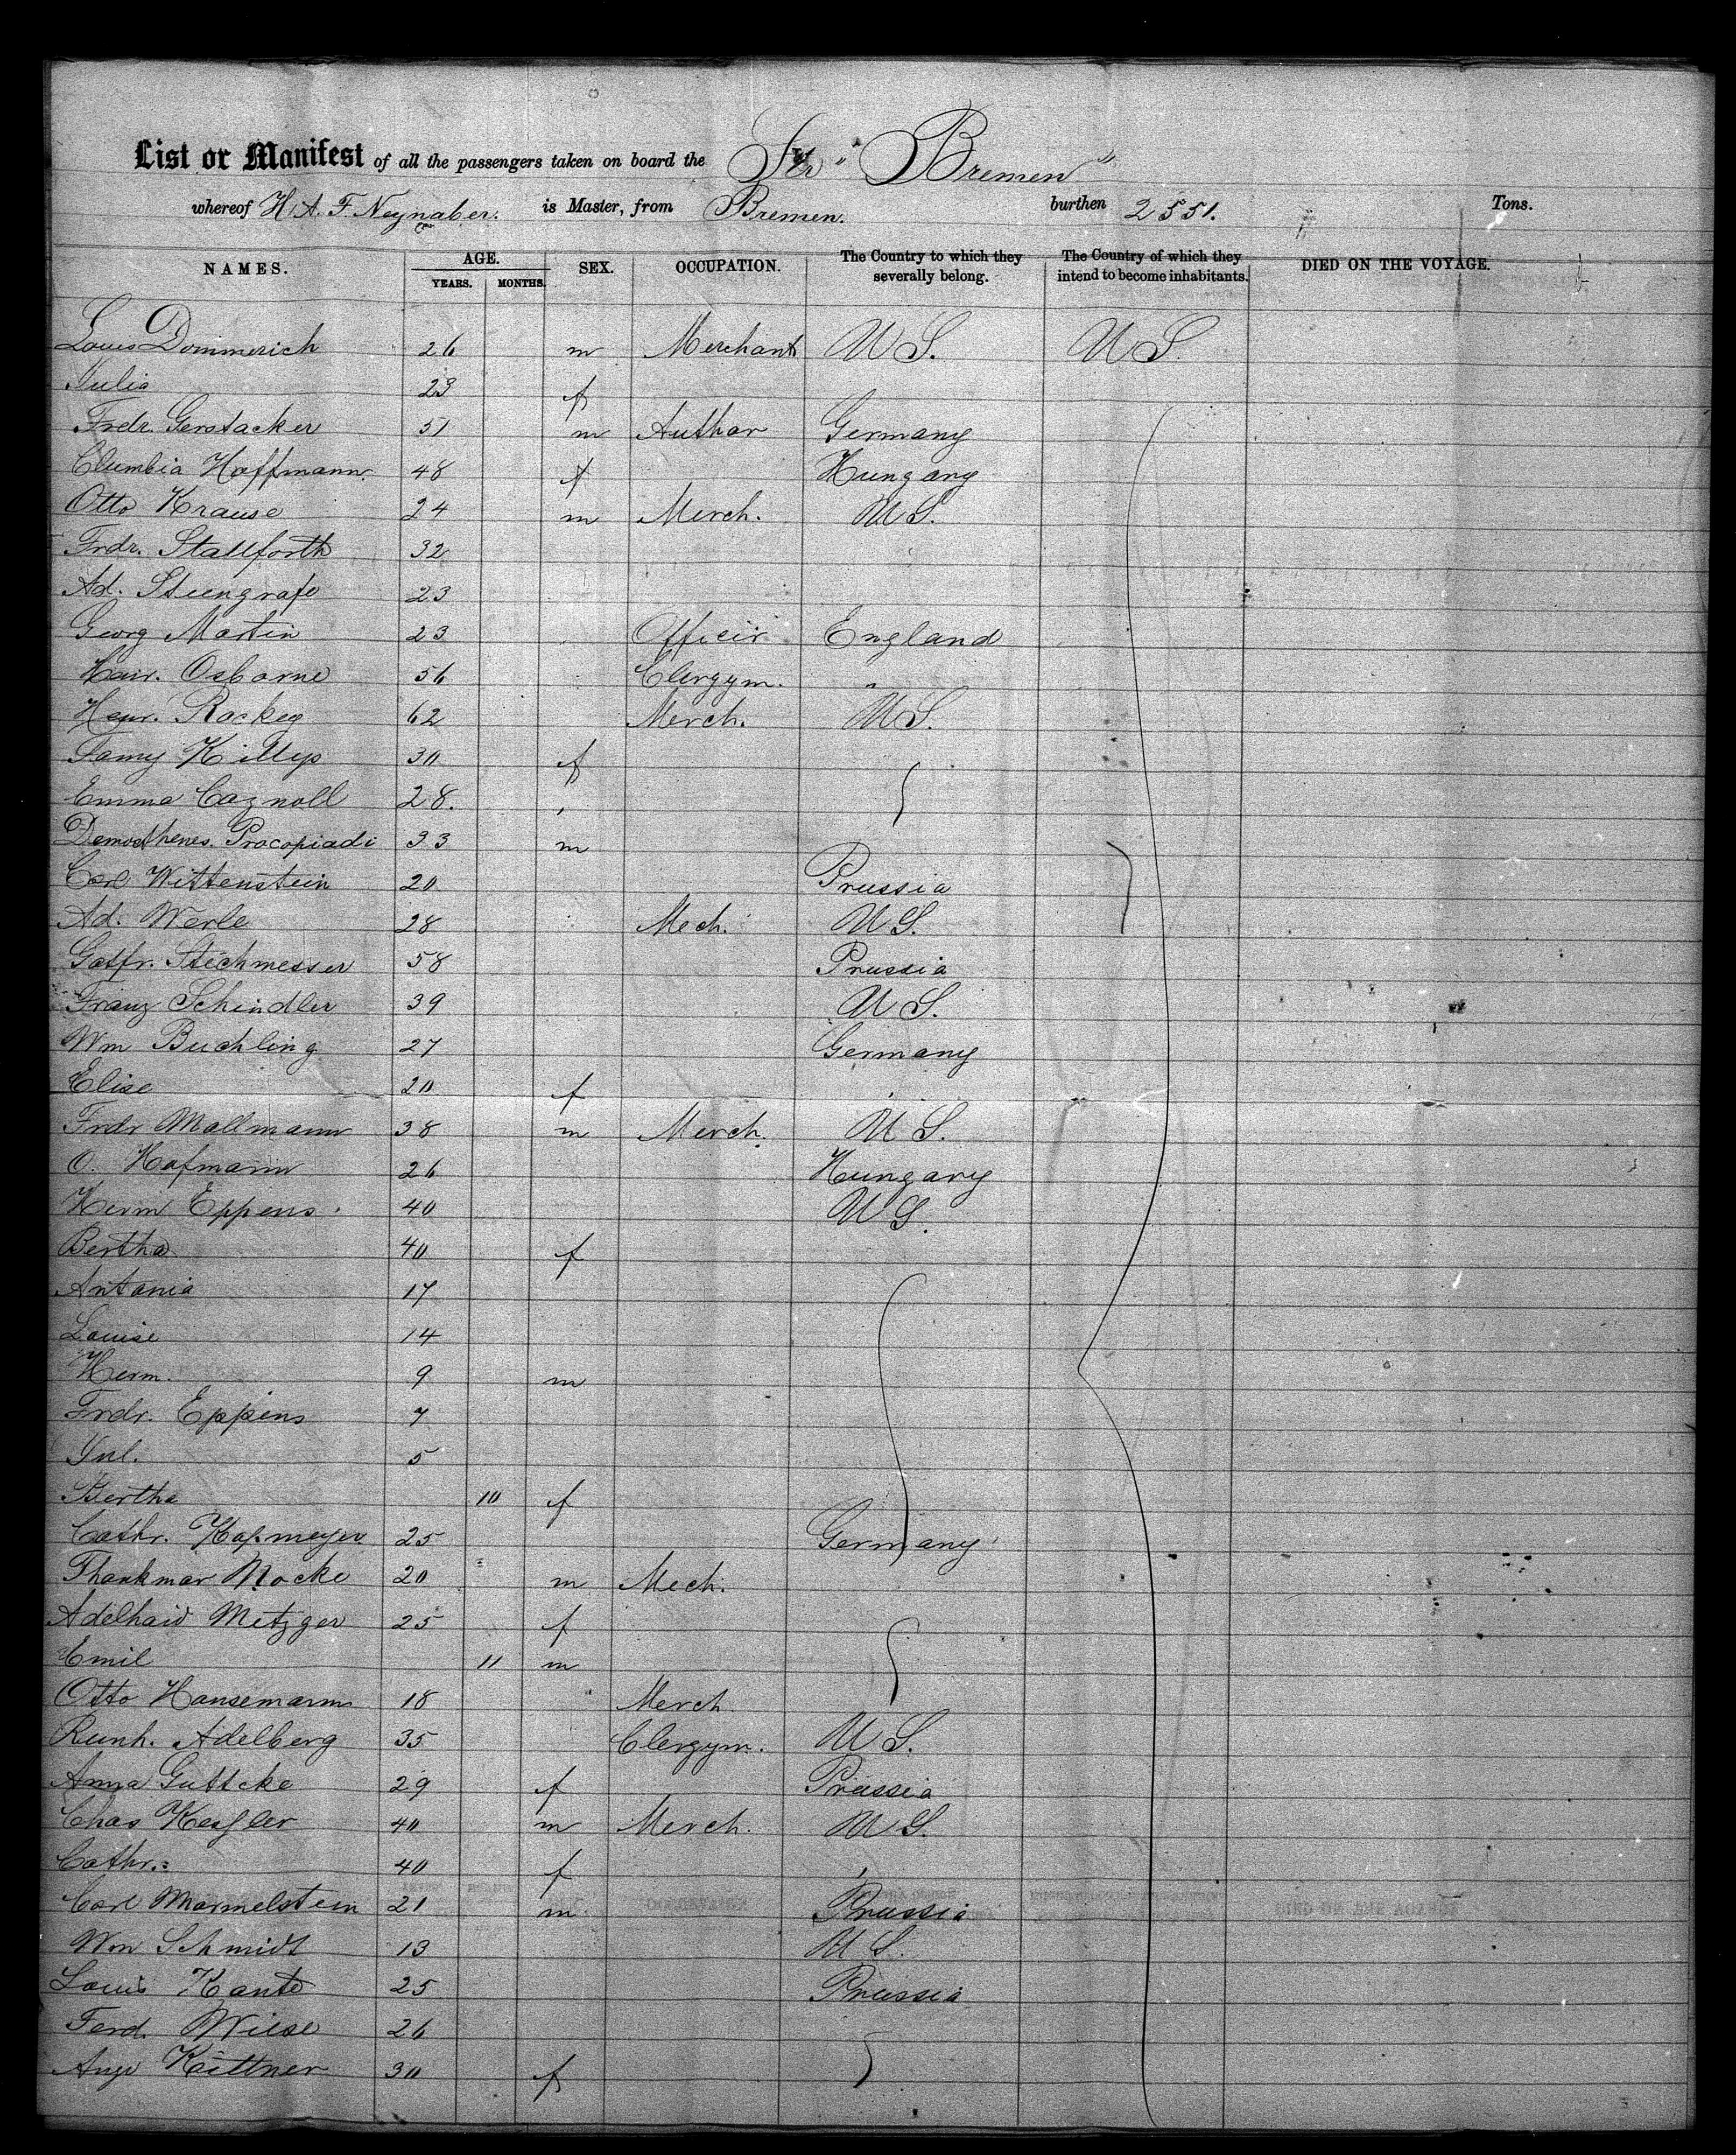 List or Manifest of all the passengers taken on board the Str "Bremen"
whereof H. A. F. Neynaber. is Master, from Bremen. burthen 2551. Tons.
NAMES. AGE. YEARS. MONTHS. SEX. OCCUPATION. The Country to which they severally belong. The Country of which they intend to become inhabitants. DIED ON THE VOYAGE.
Louis Dommerich 26 m Merchant U S. U S.
Julia 23 f
Frdr. Gerstacker 51 m Author Germany
Clumbia Hoffmann. 48 f Hungary
Otto Krause 24 m Merch. U S.
Frdr. Stallforth 32
Ad. Steengrafe 23
Georg Martin 23 Officir England
Hair. Osborne 56 Clergym. "
Henr. Rockey 62 Merch. U S.
Famy Killyp 30 f
Emma Cagnoll 28. "
Demosthenes Procopiadi 33 m
Carl Wittenstein 20 Prussia
Ad. Werle 28 Mech. U S.
Gotfr. Stechmesser 58 Prussia
Franz Schindler 39 U S.
Wm Buchling 27 Germany
Elise 20 f "
Frdr Mallmann 38 m Merch. U S.
O. Hofmann 26 Hungary
Herm Eppens 40 U S.
Bertha 40 f
Antonia 17
Louise 14
Herm. 9 m
Frdr. Eppens 7
Jul. 5
Bertha 10 f
Cathr. Hapmeyer 25 Germany
Thankmar Nocke 20 m Mech.
Adelhaid Metzger 25 f
Emil 11 m
Otto Hansemann 18 Merch
Reinh. Adelberg 35 Clergym. U S.
Anna Guttcke 29 f Prussia
Chas Kessler 40 m Merch. U S.
Cathr. 40 f "
Carl Marmelstein 21 m. Prussia
Wm Schmidt 13 U S.
Louis Kante 25 Prussia
Ferd. Wiese 26
Kittner 30 f